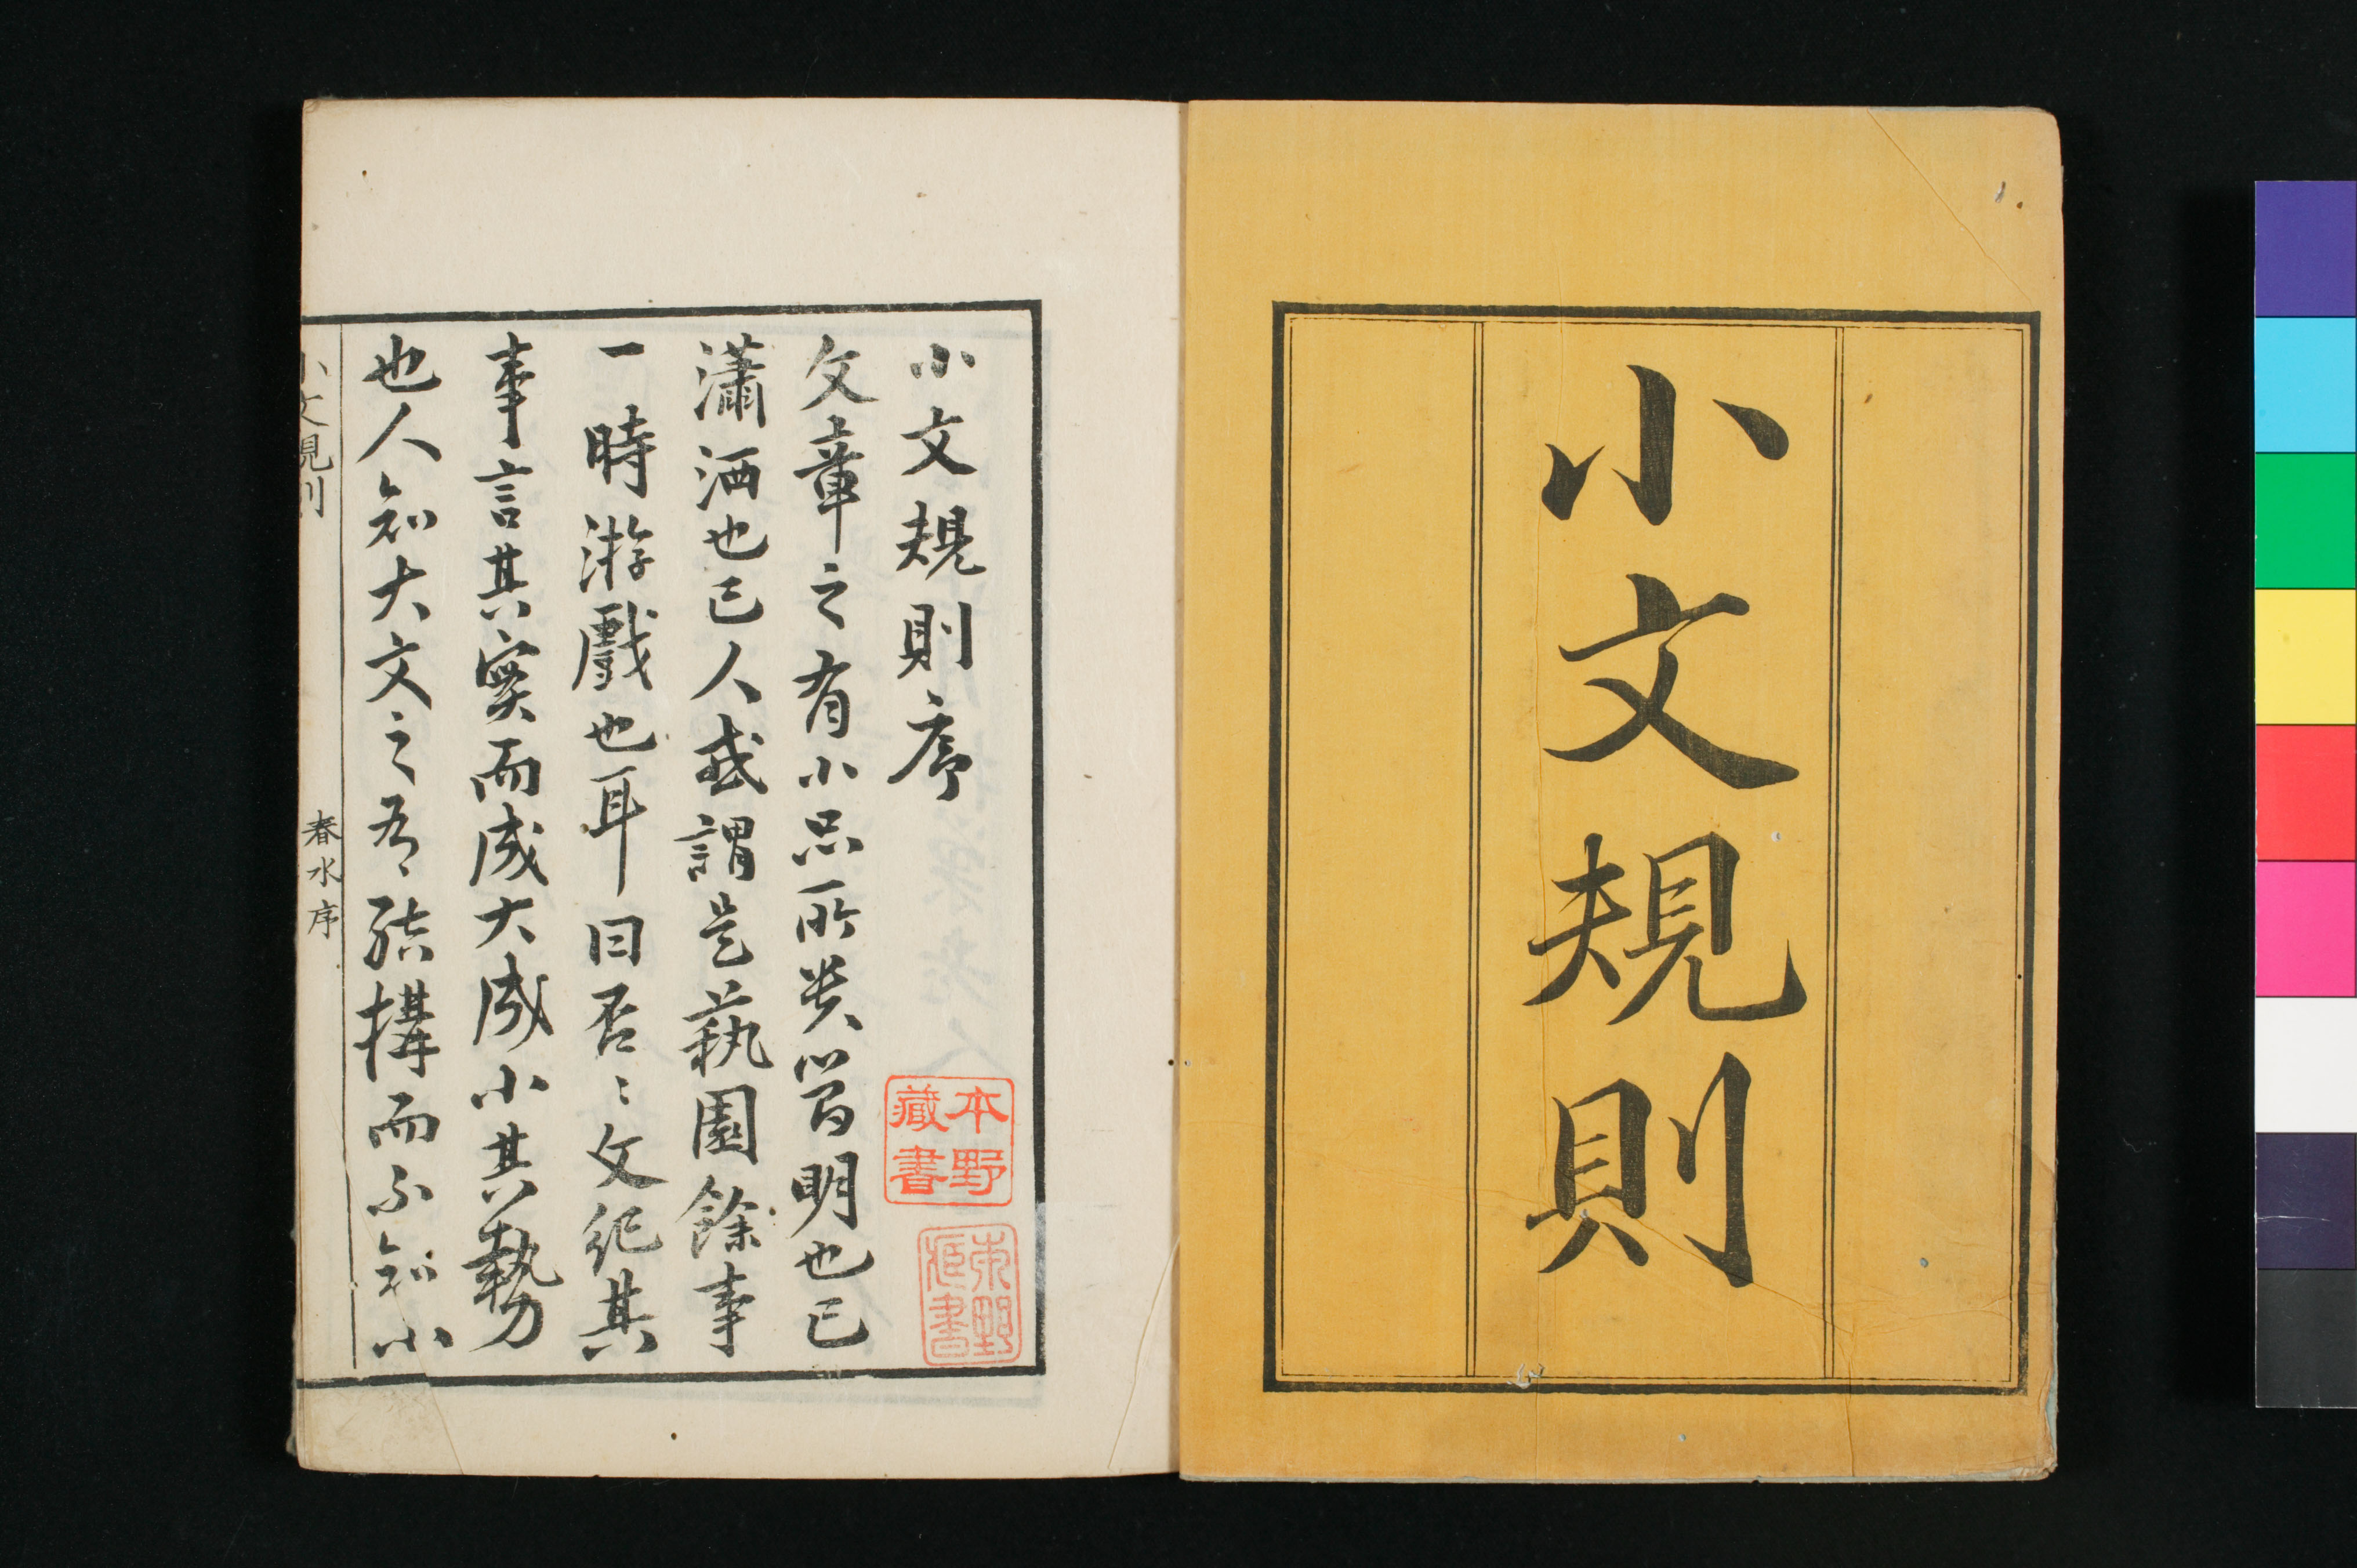 小文規則
小文規則序
本野
藏書
文章之有小品所貴簡明也已
瀟洒也已人或謂是蓺園餘事
一時游戲也耳曰否〻文紀其
事言其實而成大成小其勢
也人知大文之有結構而不知小
小文規則
春水序